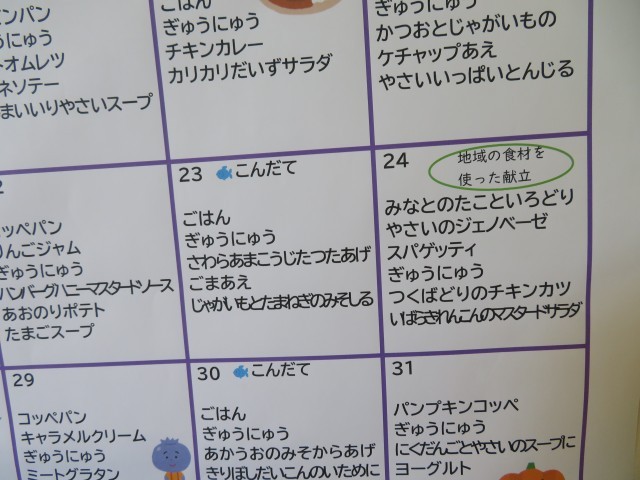 ンパン
うにゅう
オムレツ
ネソテー
まいいりやさいスープ
ごはん
ぎゅうにゅう
チキンカレー
カリカリだいずサラダ
ぎゅうにゅう
かつおとじゃがいもの
ケチャップあえ
やさいいっぱいとんじる
2
ッペパン
りんごジャム
ぎゅうにゅう
ハンバーグハニーマスタードソース
あおのりポテト
たまごスープ
23 こんだて
ごはん
ぎゅうにゅう
さわらあまこうじたつたあげ
ごまあえ
じゃがいもとたまねぎのみそしる
24 地域の食材を
使った献立
みなとのたこといろどり
やさいのジェノベーゼ
スパゲッティ
ぎゅうにゅう
つくばどりのチキンカツ
いばらきれんこんのマスタードサラダ
29
コッペパン
キャラメルクリーム
ぎゅうにゅう
ミートグラタン
30 こんだて
ごはん
ぎゅうにゅう
あかうおのみそからあげ
きりぼしだいこんのいために
31
パンプキンコッペ
ぎゅうにゅう
にくだんごとやさいのスープに
ヨーグルト